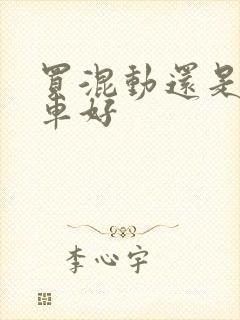 買混動還是
車好
李心宇